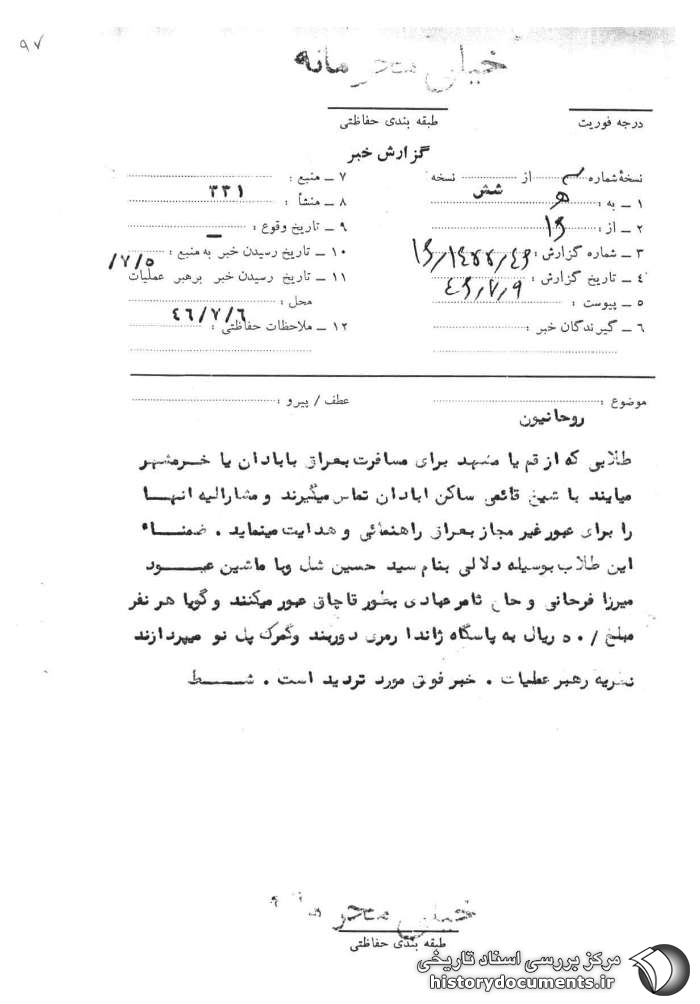 ۹۷
خیلی محرمانه
درجه فوریت
طبقه بندی حفاظتی
گزارش خبر
نسخهٔ شماره از نسخه
۱ ـ به : ه شش
۲ ـ از : ۱۶
۳ ـ شماره گزارش :
۴ ـ تاریخ گزارش : ۴۶/۷/۹
۵ ـ پیوست :
۶ ـ گیرندگان خبر :
۷ ـ منبع :
۸ ـ منشأ : ۳۳۱
۹ ـ تاریخ وقوع : ـ
۱۰ ـ تاریخ رسیدن خبر به منبع : /۷/۵
۱۱ ـ تاریخ رسیدن خبر برهبر عملیات
محل :
۱۲ ـ ملاحظات حفاظتی : ۴۶/۷/۶
موضوع :
عطف / پیرو :
روحانیون
طلابی که از قم یا مشهد برای مسافرت بعراق بابادان یا خرمشهر
میایند با شیخ قائمی ساکن ابادان تماس میگیرند و مشارالیه انها
را برای عبور غیر مجاز بعراق راهنمائی و هدایت مینماید . ضمناء
این طلاب بوسیله دلالی بنام سید حسین شل وبا ماشین عبود
میرزا فرحانی و حاج ثامر عبادی بطور قاچاق عبور میکنند و گویا هر نفر
مبلغ /۵۰ ریال به پاسگاه ژاندا رمری دوربند وگمرک پل نو میپردازند
نظریه رهبر عملیات . خبر فوق مورد تردید است . شط
خیلی محرمانه
طبقه بندی حفاظتی
مرکز بررسی اسناد تاریخی
historydocuments.ir